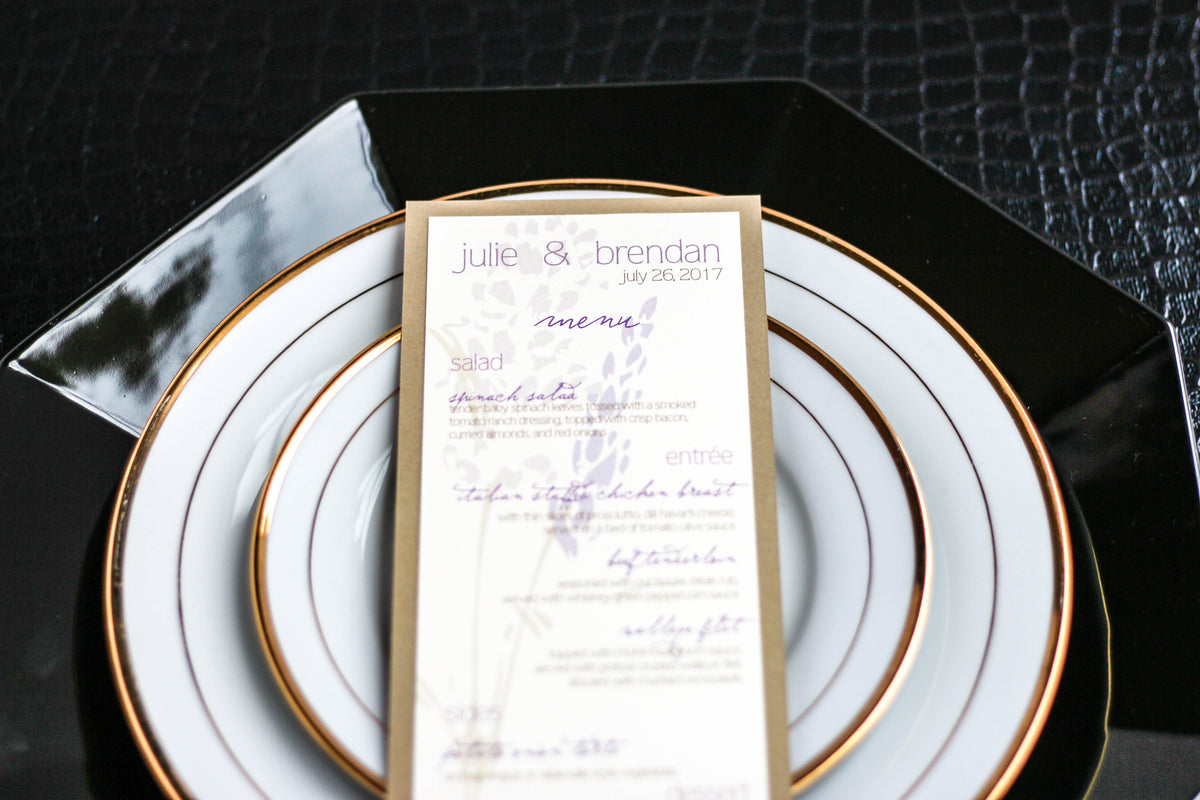 julie & brendan
july 26, 2017
menu
salad
spinach salad
tender baby spinach leaves tossed with a smoked
tomato ranch dressing, topped with crisp bacon,
curried almonds, and red onions
entrée
italian stuffed chicken breast
with thin slices of prosciutto, dill havarti cheese,
served on a bed of tomato olive sauce
beef tenderloin
seasoned with our house steak rub,
served with whiskey green peppercorn sauce
walleye filet
topped with
served with
sides
dessert